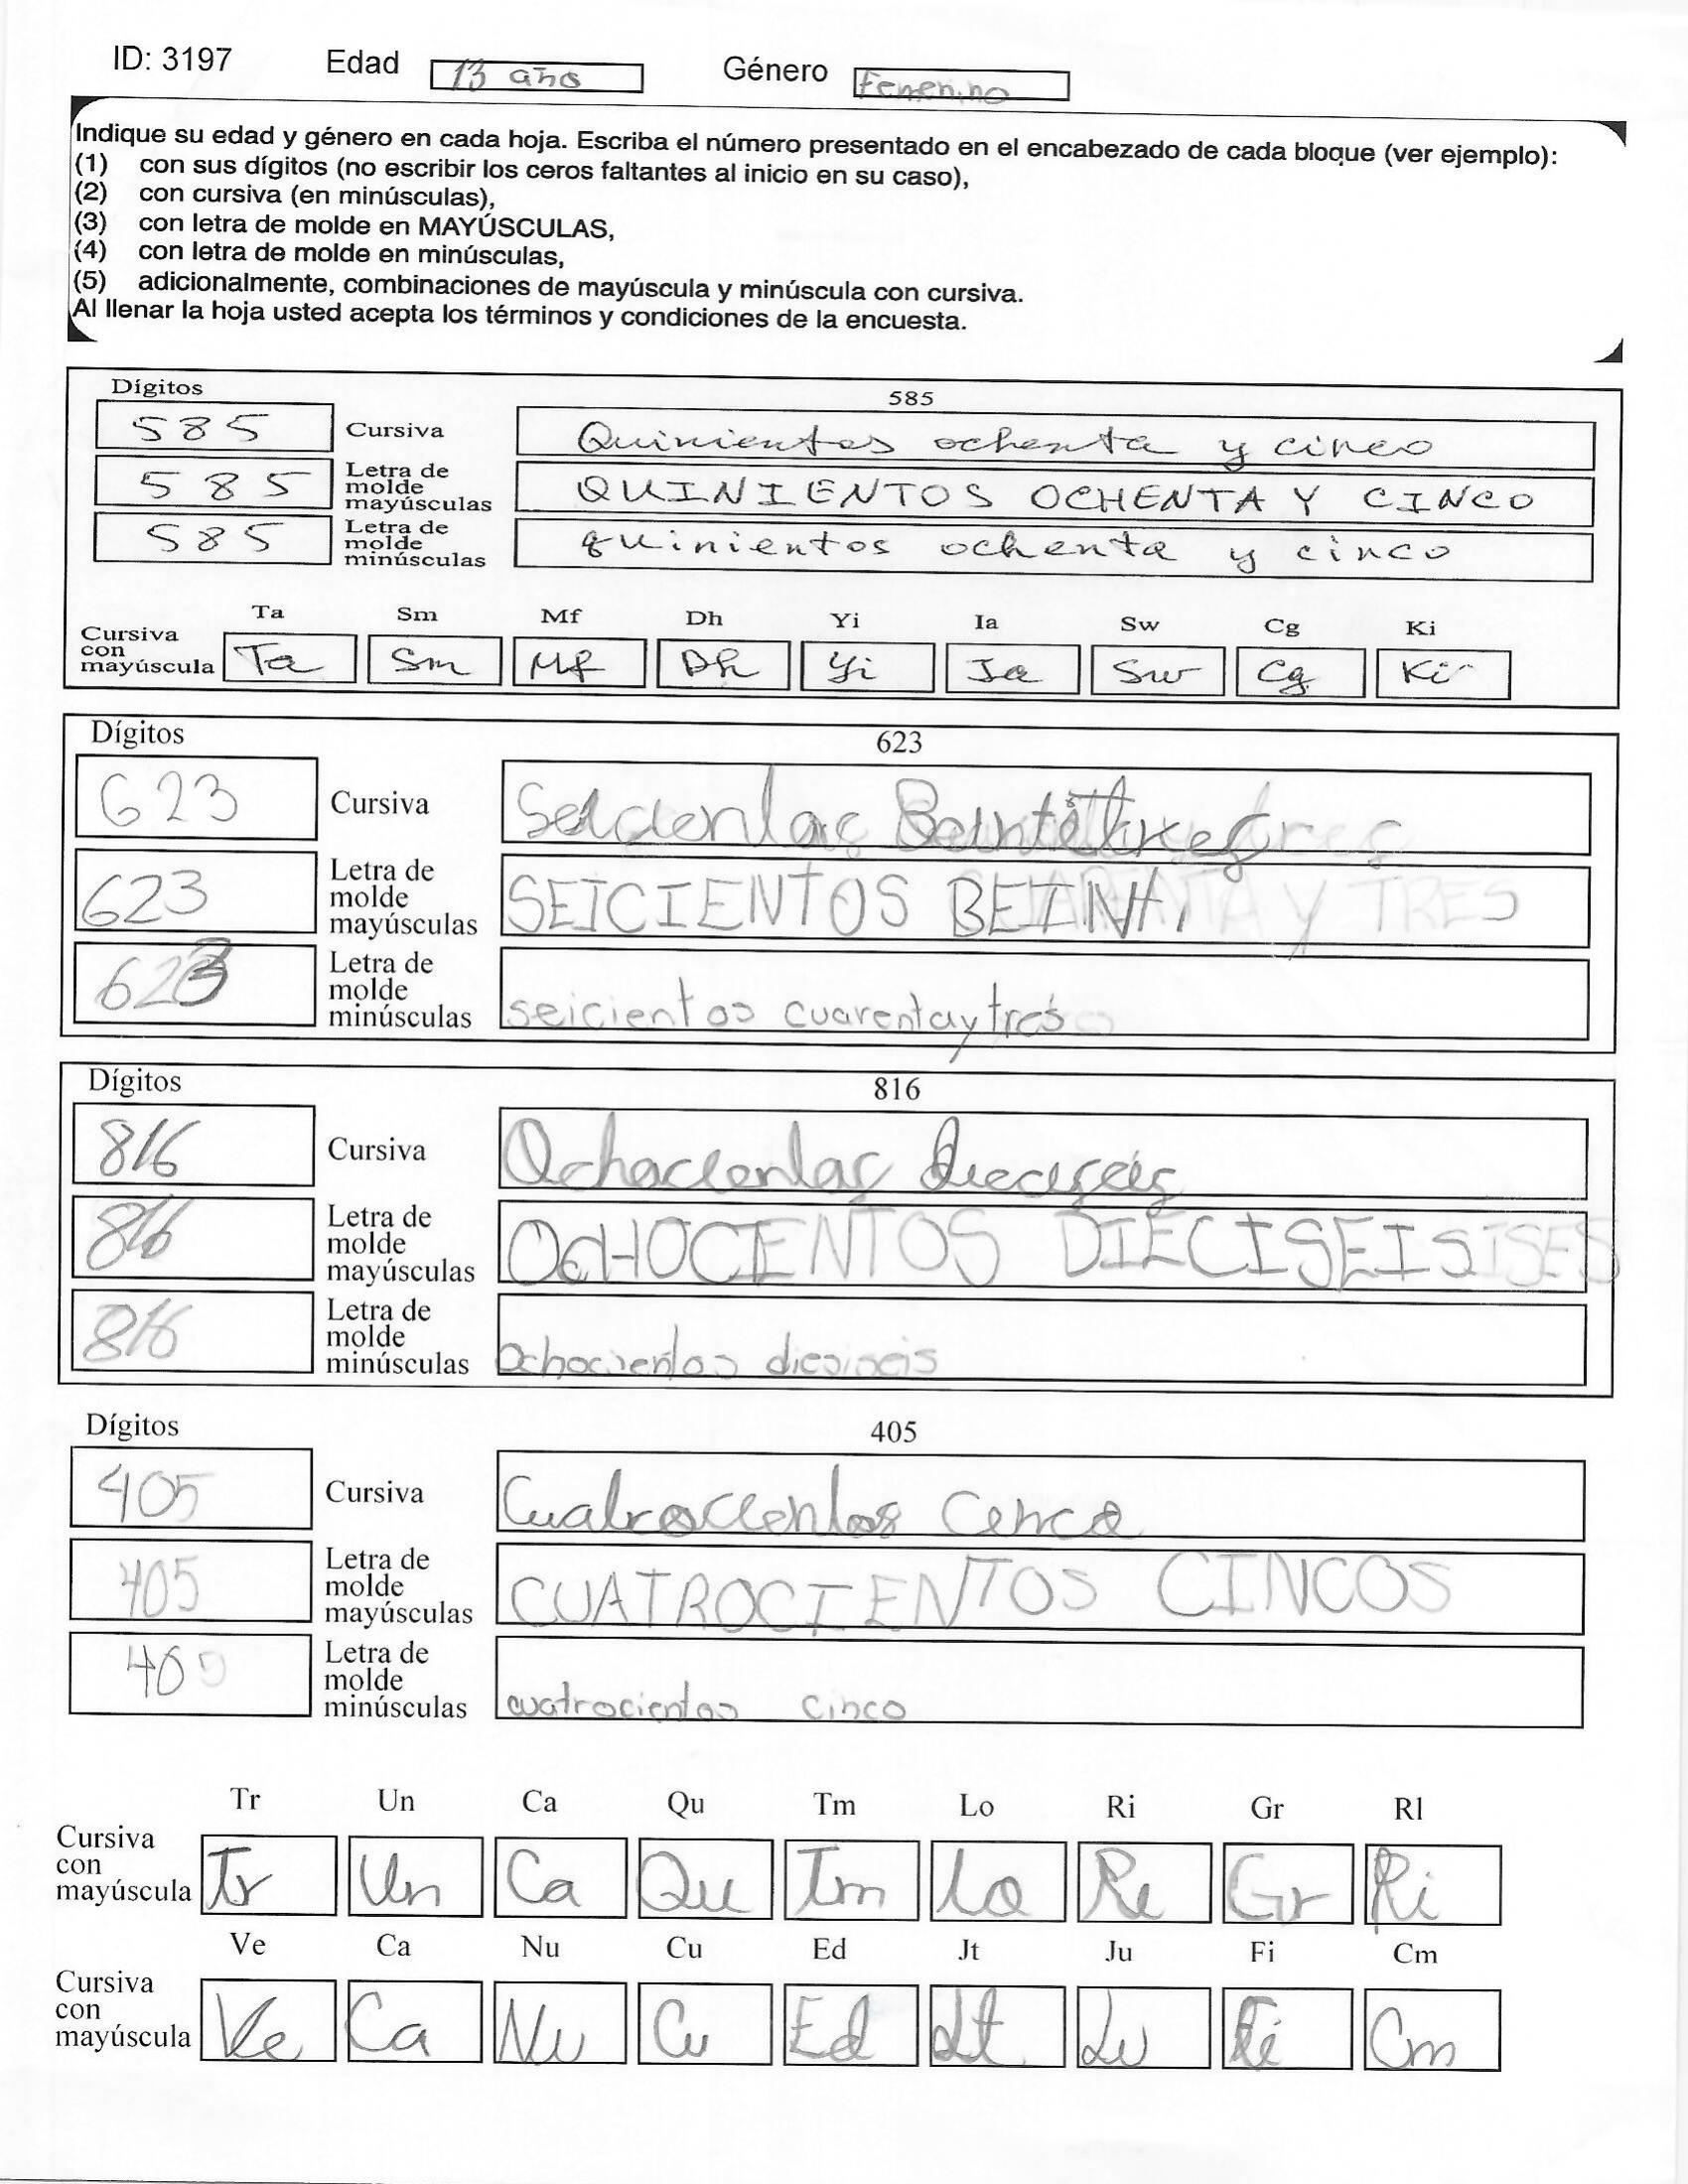 ID: 3197 Edad 13 año Género Femenino
Indique su edad y género en cada hoja. Escriba el número presentado en el encabezado de cada bloque (ver ejemplo):
(1) con sus dígitos (no escribir los ceros faltantes al inicio en su caso),
(2) con cursiva (en minúsculas),
(3) con letra de molde en MAYÚSCULAS,
(4) con letra de molde en minúsculas,
(5) adicionalmente, combinaciones de mayúscula y minúscula con cursiva.
Al llenar la hoja usted acepta los términos y condiciones de la encuesta.
Dígitos 585
585 Cursiva Quinientos ochenta y cinco
585 Letra de molde mayúsculas QUINIENTOS OCHENTA Y CINCO
585 Letra de molde minúsculas quinientos ochenta y cinco
Ta Sm Mf Dh Yi Ia Sw Cg Ki
Cursiva con mayúscula Ta Sm Mf Dh Yi Ia Sw Cg Ki
Dígitos 623
623 Cursiva
623 Letra de molde mayúsculas SEICIENTOS Y TRES
623 Letra de molde minúsculas seicientos cuarenta y tres
Dígitos 816
816 Cursiva Ochocientos dieciseis
816 Letra de molde mayúsculas OCHOCIENTOS DIECISEIS
816 Letra de molde minúsculas ochocientos diesiseis
Dígitos 405
405 Cursiva Cuatrocientos Cenco
405 Letra de molde mayúsculas CUATROCIENTOS CINCOS
405 Letra de molde minúsculas cuatrocientos cinco
Tr Un Ca Qu Tm Lo Ri Gr Rl
Cursiva con mayúscula Tr Un Ca Qu Tm Lo Re Gr Ri
Ve Ca Nu Cu Ed Jt Ju Fi Cm
Cursiva con mayúscula Ve Ca Nu Cu Ed Jt Ju Fi Cm